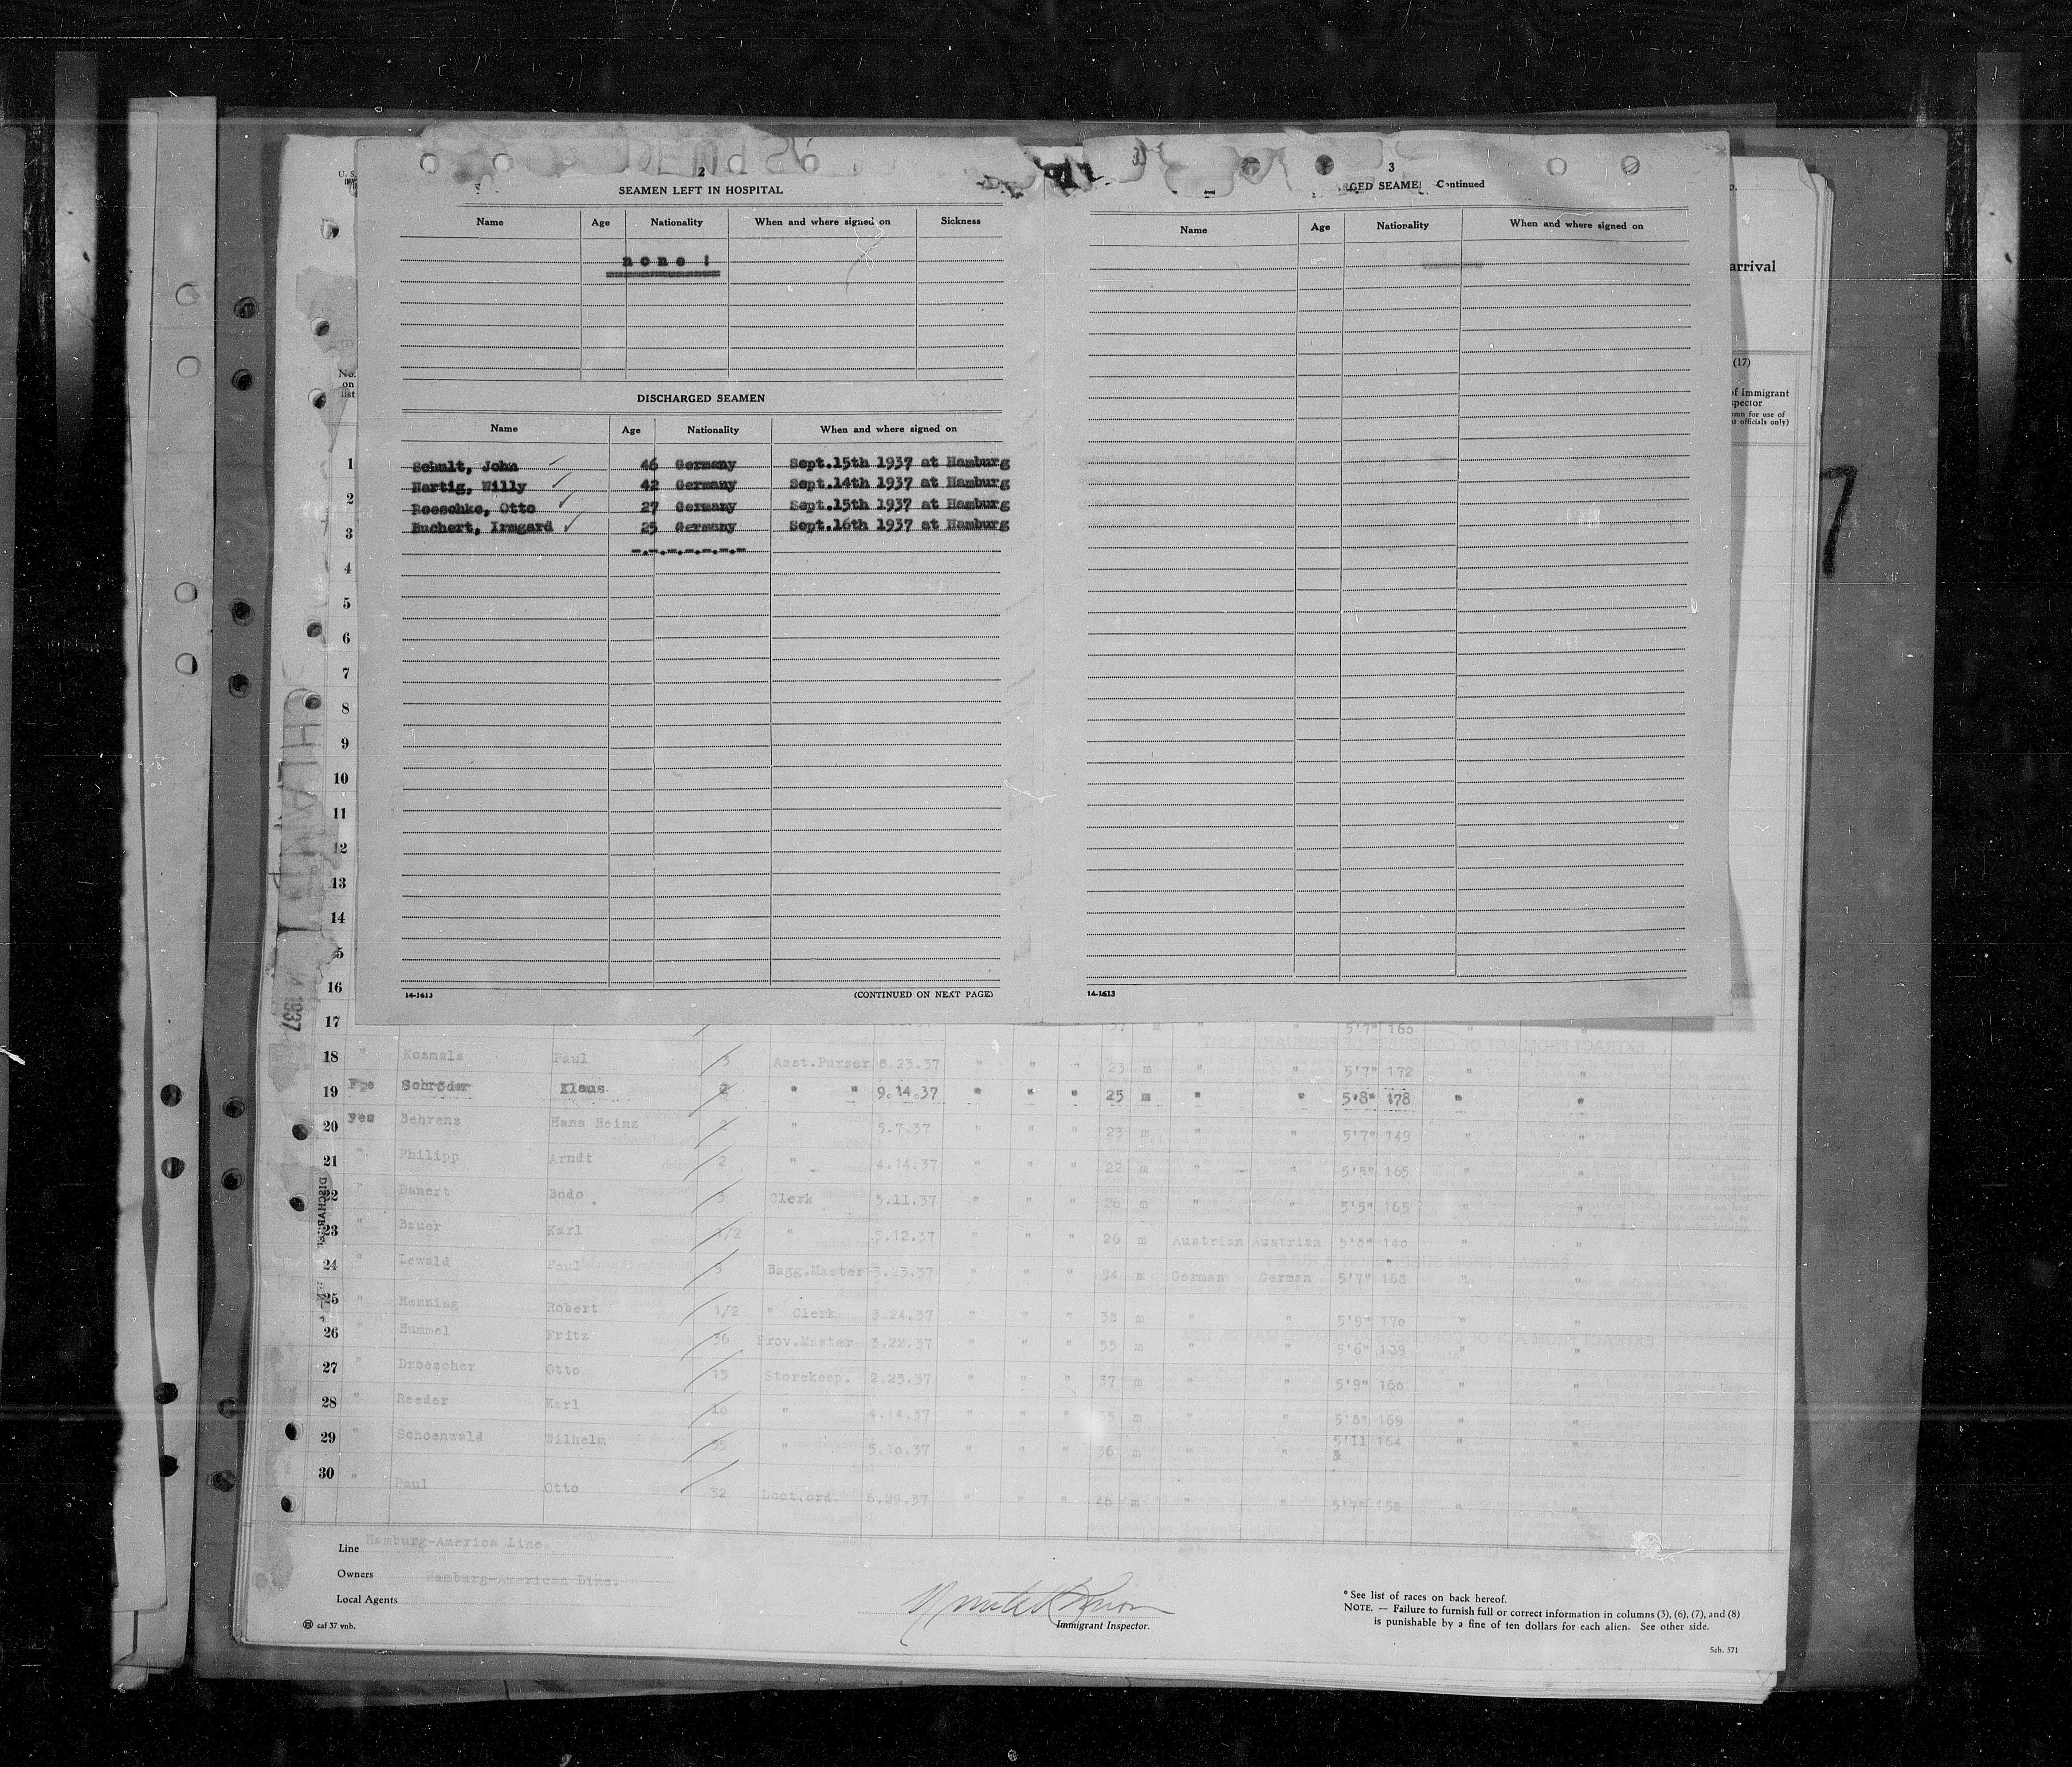 2
SEAMEN LEFT IN HOSPITAL
Name Age Nationality When and where signed on Sickness
none!
DISCHARGED SEAMEN
Name Age Nationality When and where signed on
Schult, John 46 Germany Sept.15th 1937 at Hamburg
Hartig, Willy 42 Germany Sept.14th 1937 at Hamburg
Roeschke, Otto 27 Germany Sept.15th 1937 at Hamburg
Buchert, Irmgard 25 Germany Sept.16th 1937 at Hamburg
-.-.-.-.-.-.-
14-1613 (CONTINUED ON NEXT PAGE)
3
Continued
Name Age Nationality When and where signed on
14-1613
arrival
(17)
of Immigrant
officials only)
7
No.
on
list
1
2
3
4
5
6
7
8
9
10
11
12
13
14
5
16
17 5'7" 160 " "
18 " Kosmala Paul 3 Asst.Purser 8.23.37 " " " 23 m " " 5'7" 172 " "
19 Schröder Klaus 2 " " 9.14.37 " " " 25 m " " 5'8" 178 " "
20 yes Behrens Hans Heinz 2 " 5.7.37 " " " 23 m " " 5'7" 149 " "
21 " Philipp Arndt 2 " 4.14.37 " " " 22 m " " 5'5" 165 " "
22 " Danert Bodo 3 Clerk 5.11.37 " " " 26 m " " 5'5" 165 " "
23 " Bauer Karl 1/2 " 5.12.37 " " " 26 m Austrian Austrian 5'8" 140 " "
24 " Lewald Paul 9 Bagg.Master 3.23.37 " " " 54 m German German 5'7" 168 " "
25 " Henning Robert 1/2 " Clerk 3.24.37 " " " 38 m " " 5'9" 170 " "
26 " Hummel Fritz 36 Prov.Master 3.22.37 " " " 55 m " " 5'6" 139 " "
27 " Droescher Otto 15 Storekeep. 2.23.37 " " " 37 m " " 5'9" 160 " "
28 " Reeder Karl 10 " 4.14.37 " " " 35 m " " 5'8" 169 " "
29 " Schoenwald Wilhelm 35 " 5.10.37 " " " 36 m " " 5'11 164 " "
30 " Paul Otto 32 6.29.37 " " " 48 m " " 5'7" 158 " "
Line Hamburg-America Line.
Owners Hamburg-American Line.
Local Agents
caf 37 vnh.
Immigrant Inspector.
* See list of races on back hereof.
NOTE. — Failure to furnish full or correct information in columns (3), (6), (7), and (8)
is punishable by a fine of ten dollars for each alien. See other side.
Sch. 571
1937